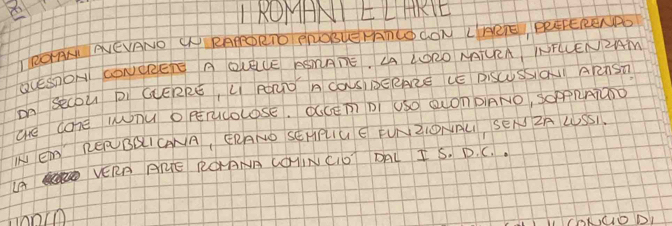 I ROMANI E L'ARTE
I ROMANI AVEVANO UN RAPPORTO PROBLEMATICO CON L'ARTE, PREFERENDO
QUESTIONI CONCRETE A QUELLE ASTRATTE. LA LORO NATURA, INFLUENZATA
DA SECOLI DI GUERRE, LI PORTÒ A CONSIDERARE LE DISCUSSIONI ARTISTI
CHE COME INUTILI O PERICOLOSE. OGGETTI DI USO QUOTIDIANO, SOPRATTUTTO
IN ETÀ REPUBBLICANA, ERANO SEMPLICI E FUNZIONALI, SENZA LUSSI.
LA VERA ARTE ROMANA COMINCIÒ DAL I S. D.C..